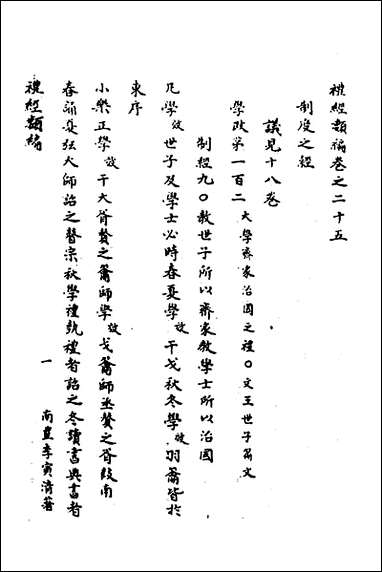 禮經類編卷之二十五
制度之經
議見十八卷
學政第一百二 大學齊家治國之禮○文王世子篇文
制經九○教世子所以齊家教學士所以治國
凡學效世子及學士必時春夏學效干戈秋冬學效羽籥皆於
東序
小樂正學效干大胥贊之籥師學效戈籥師丞贊之胥鼓南
春誦夏弦大師詔之瞽宗秋學禮執禮者詔之冬讀書典書者
禮經類編 一 南豐李寅清著